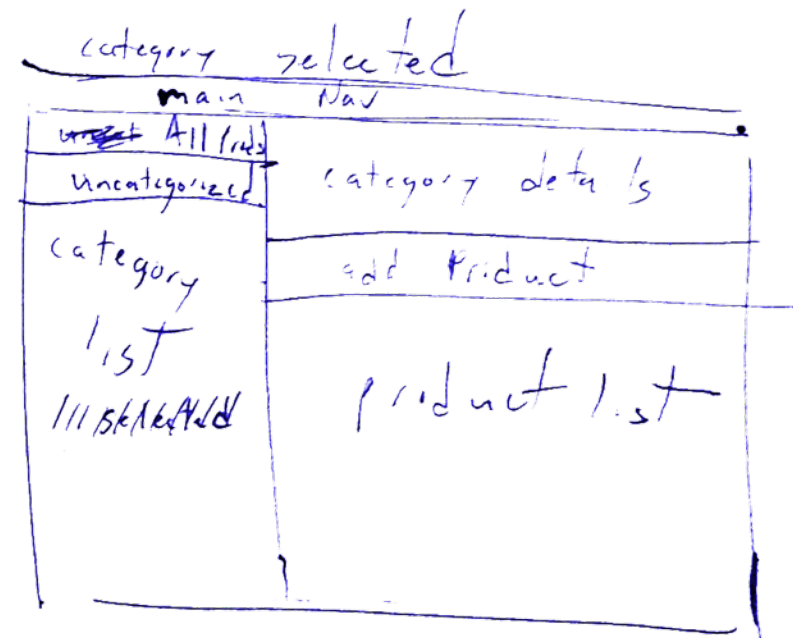 category selected
main Nav
All Prods
Uncategorized
category
list
category details
add Product
product list